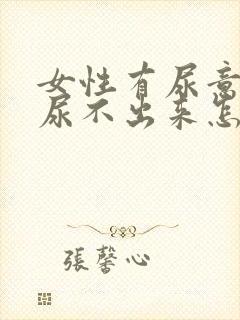 女性有尿意
尿不出来怎
張馨心